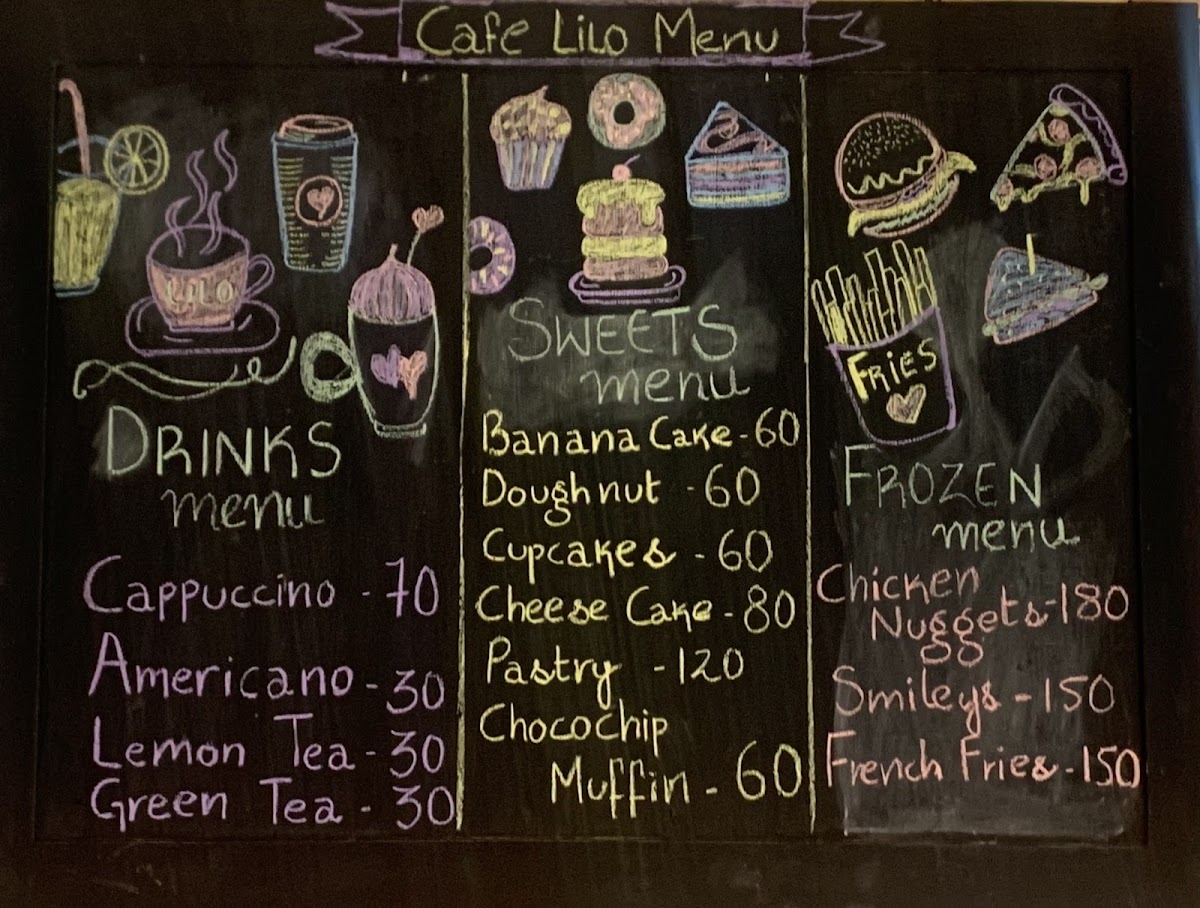 Cafe Lilo Menu
LILO
DRINKS
menu
Cappuccino - 70
Americano - 30
Lemon Tea - 30
Green Tea - 30
SWEETS
menu
Banana Cake - 60
Doughnut - 60
Cupcakes - 60
Cheese Cake - 80
Pastry - 120
Chocochip
Muffin - 60
FRIES
FROZEN
menu
Chicken
Nuggets - 180
Smileys - 150
French Fries - 150